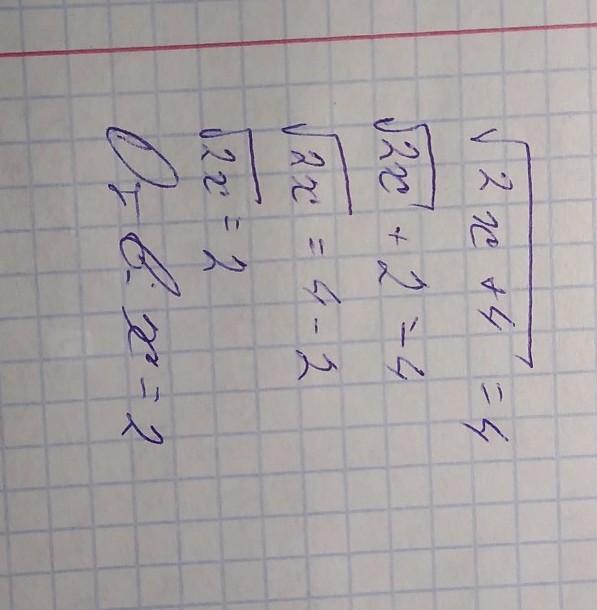 √2x+4 = 4
√2x + 2 = 4
√2x = 4 - 2
√2x = 2
От-в: x = 2